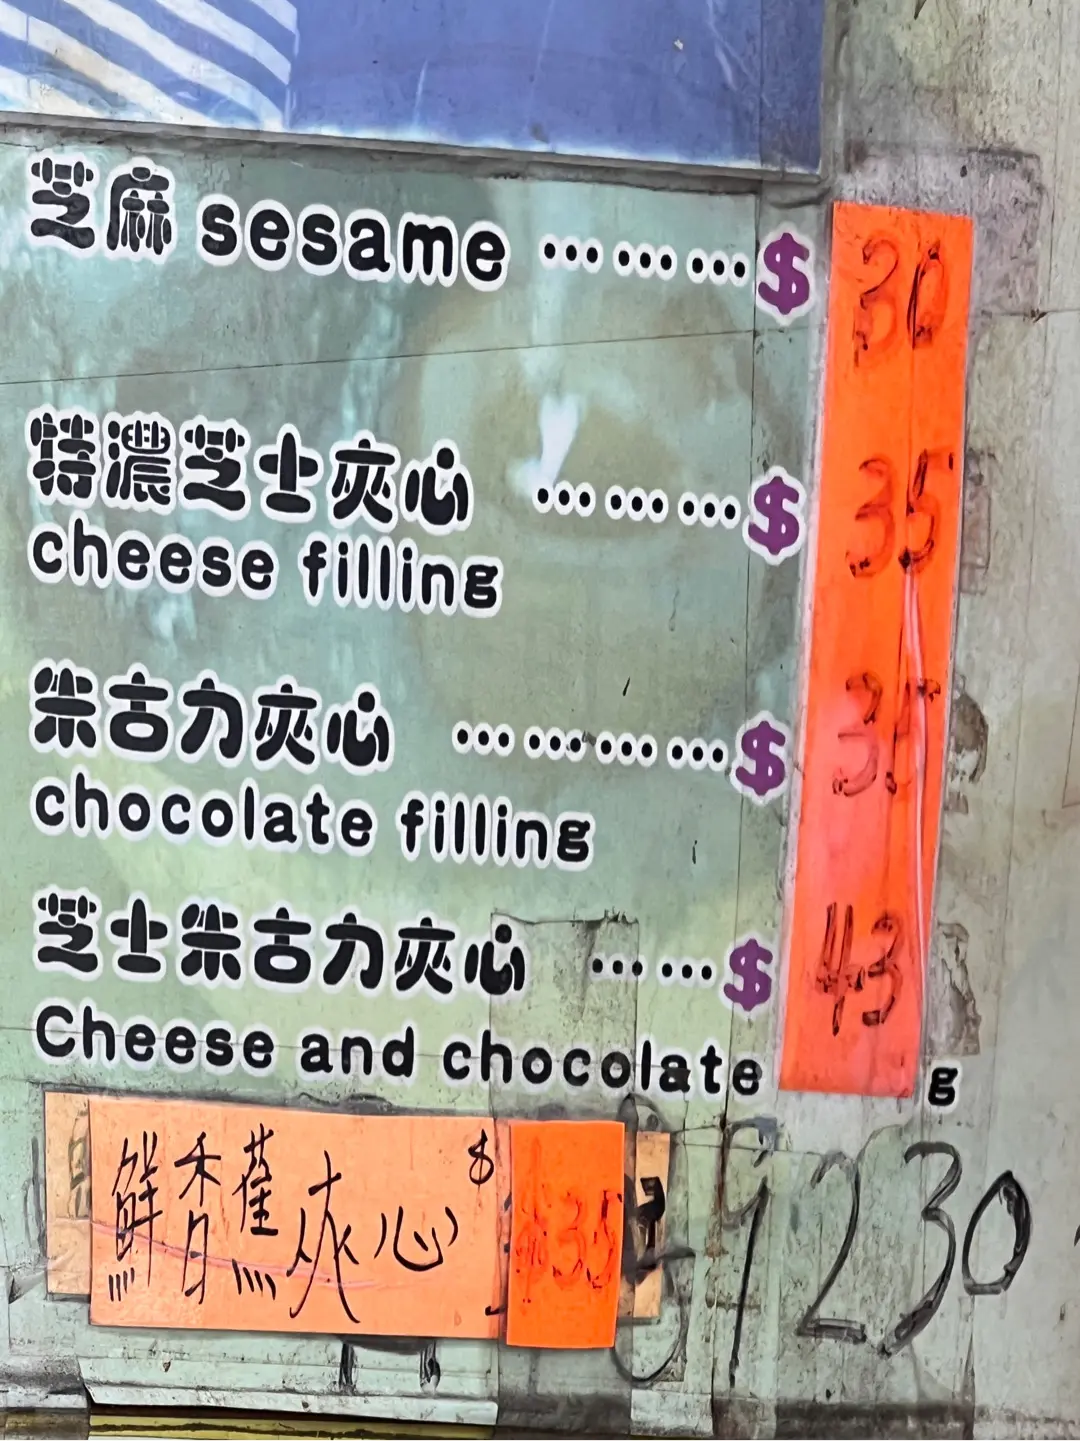 芝麻 sesame ... ... ... $ 30
特濃芝士夾心 ... ... ... $ 35
cheese filling
朱古力夾心 ... ... ... ... $ 35
chocolate filling
芝士朱古力夾心 ... ... $ 43
Cheese and chocolate g
鮮香蕉夾心 $ $35
9230